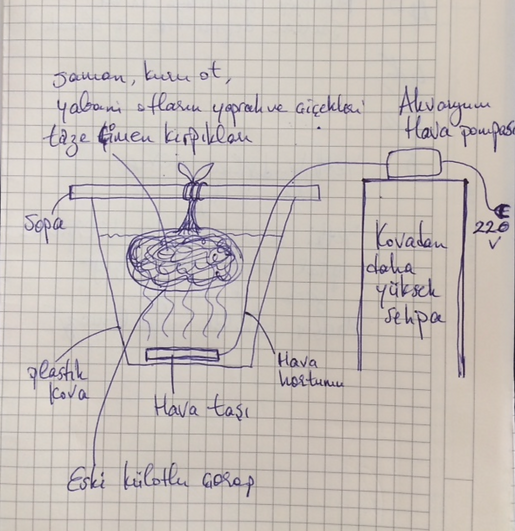 saman, kuru ot,
yabani otların yaprak ve çiçekleri
taze çimen kırpıkları
Akvaryum
Hava pompası
Sopa
220
V
Kovadan
daha
yüksek
sehpa
plastik
kova
Hava
hortumu
Hava taşı
Eski külotlu çorap